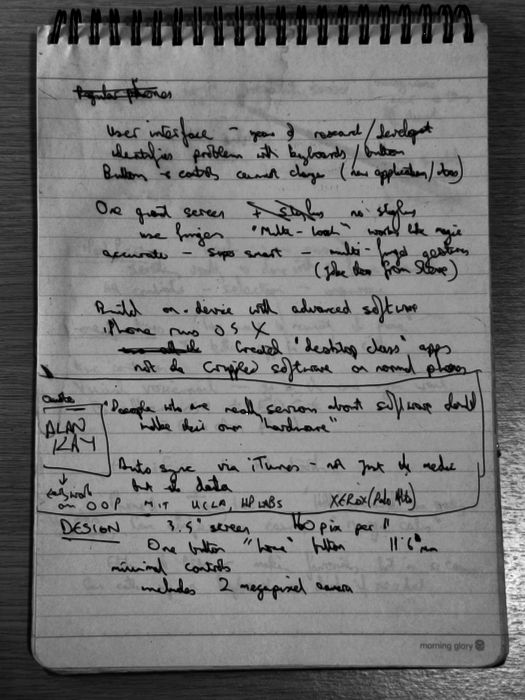 Regular phones
User interface - years of research/develop't
identifies problem with keyboards/button
Button + controls cannot change (new application/ideas)
One giant screen + stylus no stylus
use fingers "Multi-touch" works like magic
accurate - super smart - multi-finger gestures
(Joke here from Steve)
Build on-device with advanced software
iPhone runs OS X
Created "desktop class" apps
not the crippled software on normal phones
Quotes
"People who are really serious about software should
make their own "hardware"
ALAN
KAY
Auto sync via iTunes - not just the media
but the data
early work
on OOP MIT UCLA, HP LABS XEROX (Palo Alto)
DESIGN 3.5" screen 160 pix per "
One button "home" button 11.6mm
minimal controls
includes 2 megapixel camera
morning glory